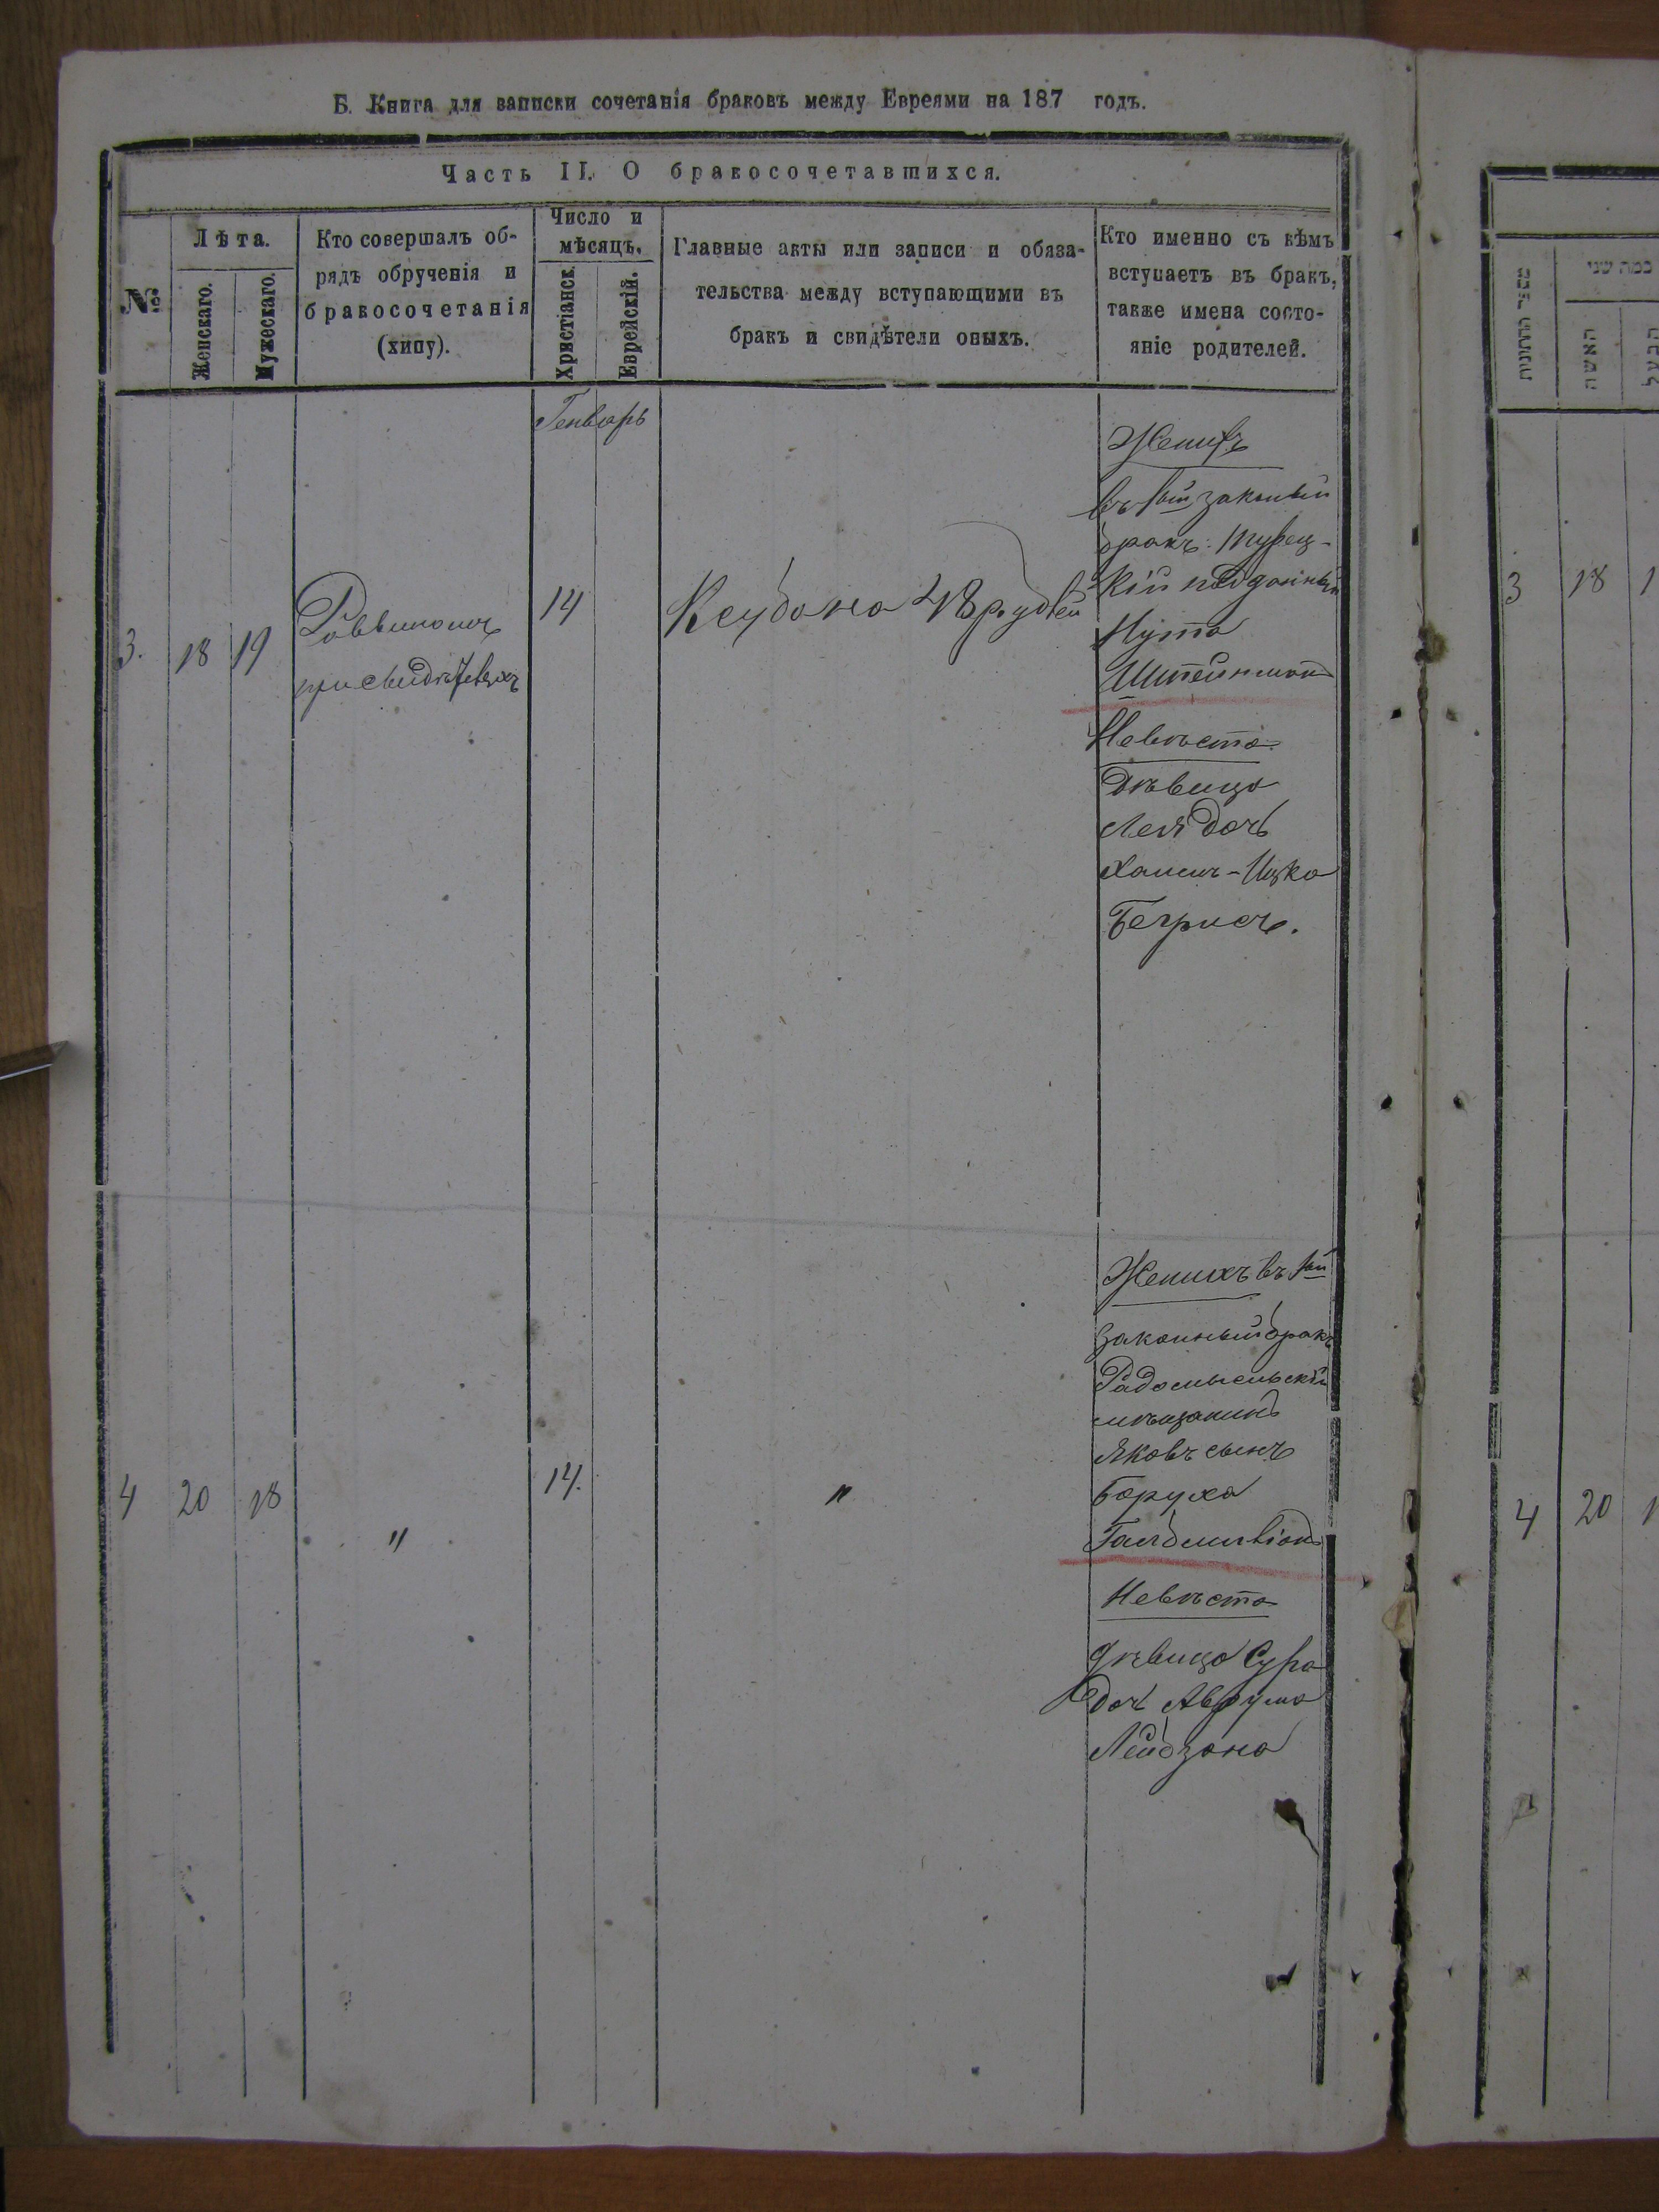 Б. Книга для записки сочетанія браковъ между Евреями на 187 годъ.
Часть II. О бракосочетавшихся.
№
Лѣта.
Женскаго.
Мужескаго.
Кто совершалъ об-
рядъ обрученія и
бракосочетанія
(хипу).
Число и
мѣсяцъ.
Христіанск.
Еврейскій.
Главные акты или записи и обяза-
тельства между вступающими въ
бракъ и свидѣтели оныхъ.
Кто именно съ кѣмъ
вступаетъ въ бракъ,
также имена состо-
яніе родителей.
Генварь
3.
18
19
Раввиномъ
при свидѣтеляхъ
14
Ксубо на 48 рублей
Женихъ
въ 1ый законный
бракъ: Турец-
кій подданный
Нута
Штейнманъ
Невѣста
Дѣвица
Лея дочь
Хаимъ-Ицка
4
20
18
"
14.
"
Женихъ въ 1ый
законный бракъ
Радомысльскій
мѣщанинъ
Яковъ сынъ
Боруха
Невѣста
дѣвица Сура
дочь Аврума
Лейбзона
מספר החתונות
כמה שני
האשה
הבעל
3
18
1
4
20
1